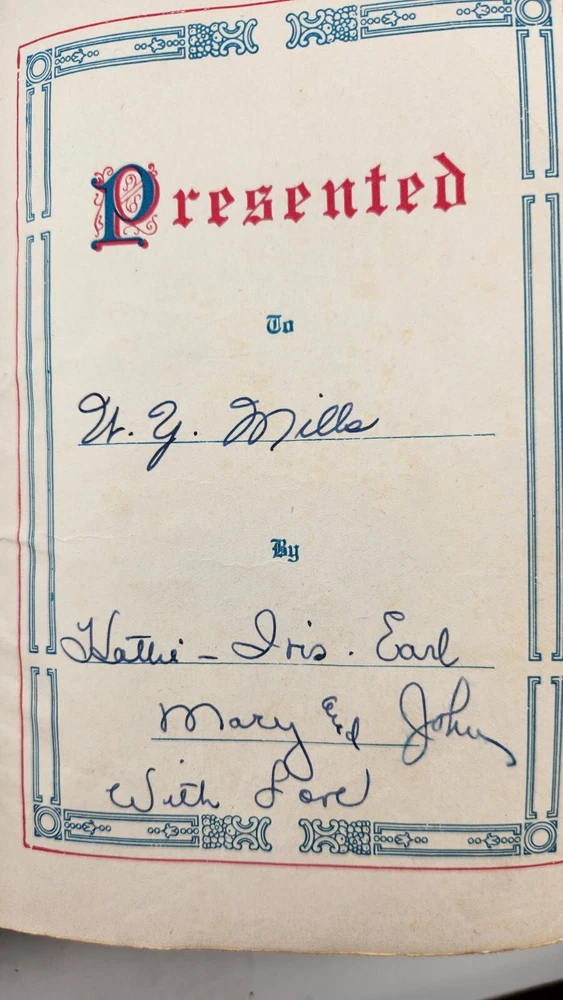 Presented
To
W. Y. Mills
By
Hattie - Iris. Earl
Mary And John
With Love